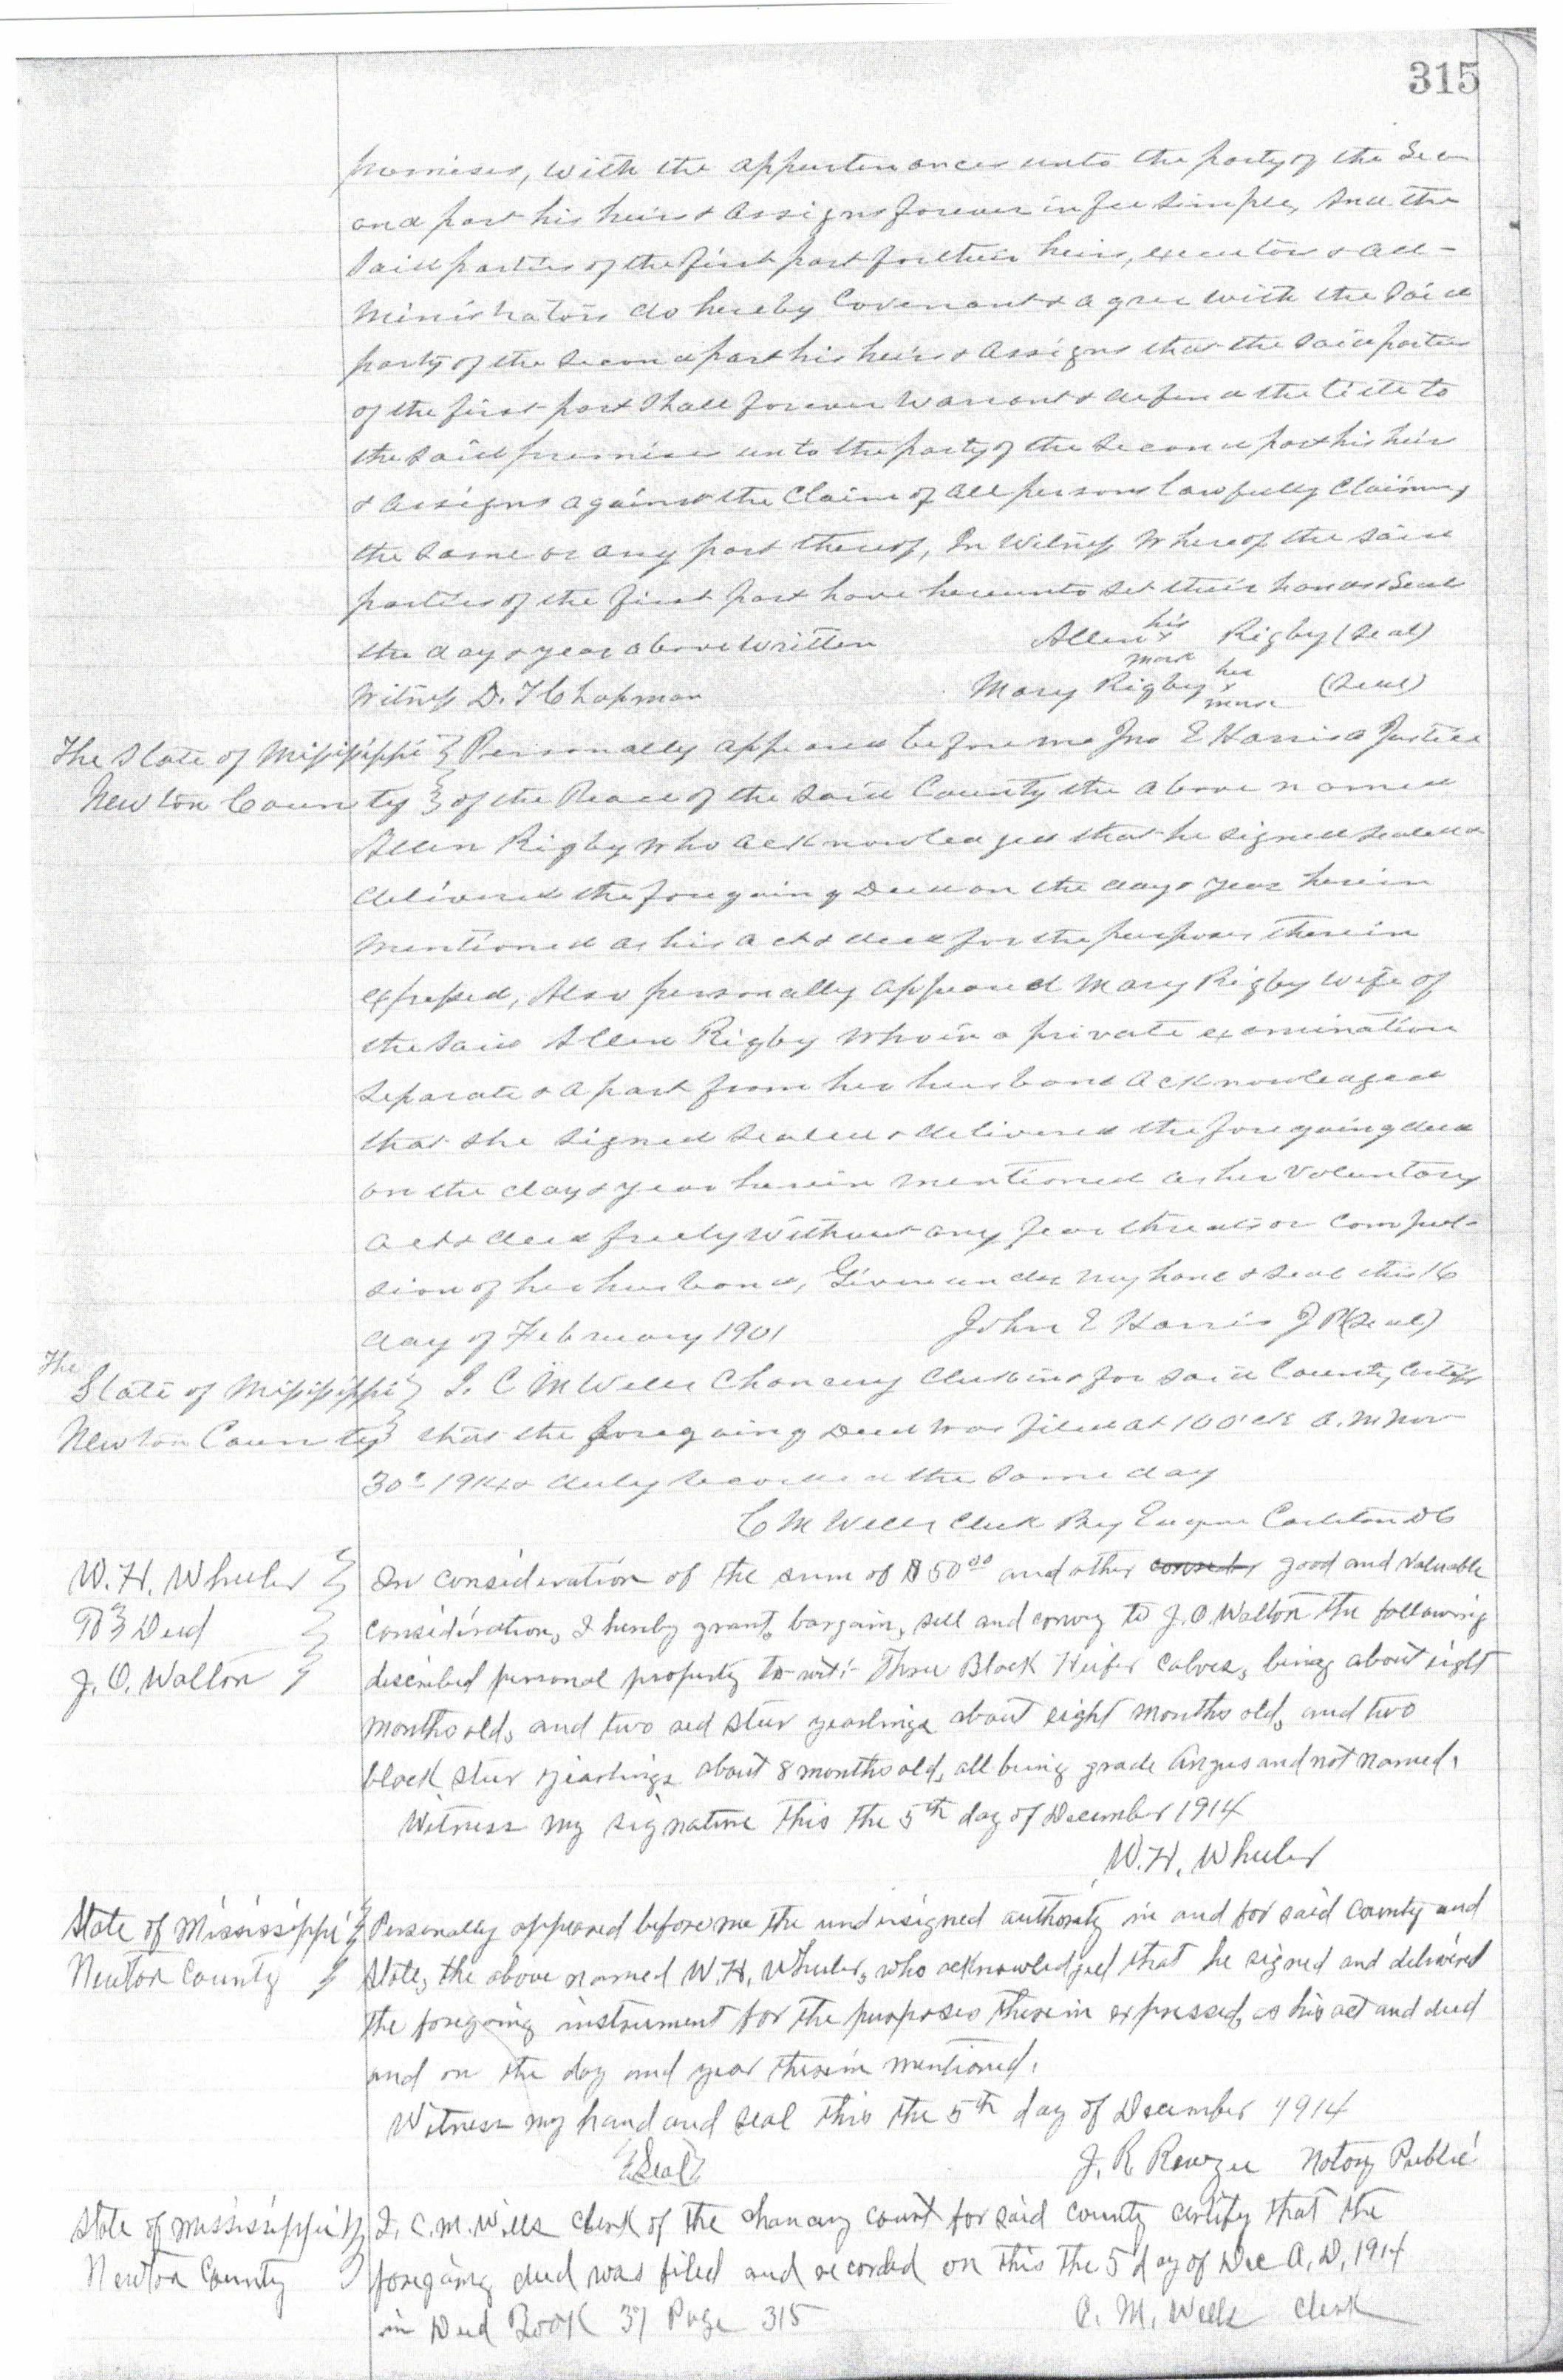 315
premises, with the appurtenances unto the party of the Sec
ond part his heirs & assigns forever in fee simple, And the
Said parties of the first part for their heirs, executors & ad-
ministrators do hereby Covenant & agree with the Said
party of the Second part his heirs & assigns that the Said parties
of the first part Shall forever Warrant & defend the title to
the Said premises unto the party of the Second part his heirs
& assigns against the Claim of all persons lawfully Claiming
the Same or any part thereof, In Witness Whereof the Said
parties of the first part have hereunto set their hands & Seals
the day & year above Written Allen his x mark Rigby (Seal)
Witness D. T Chapman Mary Rigby her x mark (Seal)
The State of Mississippi } Personally appeared before me Jno E Harris a Justice
Newton County } of the Peace of the Said County the above named
Allen Rigby Who acknowledged that he signed sealed &
delivered the foregoing Deed on the day & year herein
mentioned as his act & deed for the purposes therein
expressed, Also personally appeared Mary Rigby wife of
the Said Allen Rigby Who in a private examination
Separate & apart from her husband acknowledged
that she Signed Sealed & delivered the foregoing deed
on the day & year herein mentioned as her Voluntary
act & deed freely without any fear threats or compul-
sion of her husband, Given under my hand & Seal this 16
day of February 1901 John E Harris J P (Seal)
The State of Mississippi } I. C M Wells Chancery Clerk in & for Said County, Certify
Newton County } that the foregoing Deed was filed at 10 O'clk A.M Nov
30th 1914 & duly recorded the Same day
C M Wells Clerk By Eugene Carleton D C
W. H. Wheeler } In consideration of the sum of $50.00 and other consider good and valuable
To } Deed } consideration, I hereby grant, bargain, sell and convey to J. O. Walton the following
J. O. Walton } described personal property to-wit:- Three Black Heifer calves, being about eight
months old, and two red steer yearlings about eight months old, and two
black steer yearlings about 8 months old, all being grade Angus and not named.
Witness my signature this the 5th day of December 1914
W. H. Wheeler
State of Mississippi } Personally appeared before me the undersigned authority in and for said County and
Newton County } State, the above named W. H. Wheeler, who acknowledged that he signed and delivered
the foregoing instrument for the purposes therein expressed, as his act and deed
and on the day and year therein mentioned.
Witness my hand and seal this the 5th day of December 1914
{Seal} J. R. Rewzee Notory Public
State of Mississippi } I. C. M. Wells clerk of the chancery court for said county certify that the
Newton County } foregoing deed was filed and recorded on this the 5 day of Dec A. D. 1914
in Deed Book 37 Page 315 C. M. Wells Clerk